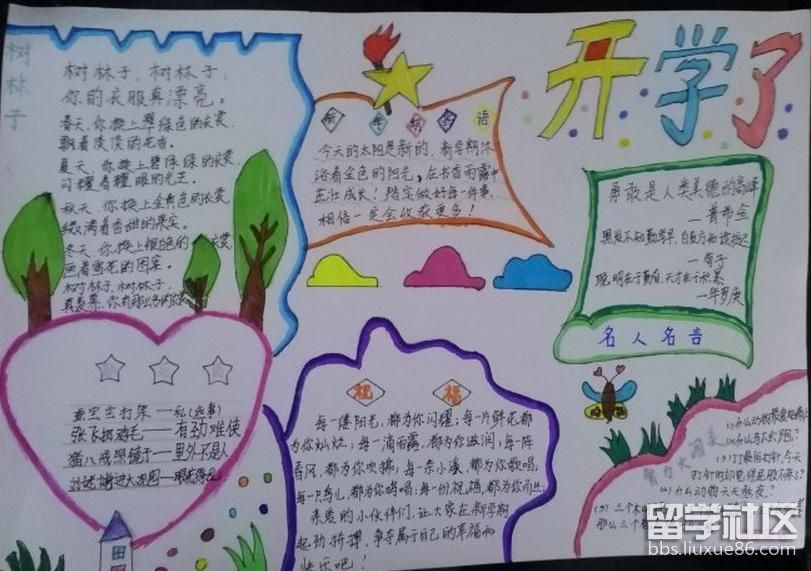 开学了
树林子
树林子，树林子，
你的衣服真漂亮。
春天，你换上翠绿色的衣裳，
飘着淡淡的花香。
夏天，你换上碧绿绿的衣裳，
闪耀着耀眼的光芒。
秋天，你换上金黄色的衣裳，
缀满着香甜的果实。
冬天，你换上银色的衣裳，
画着雪花的图案。
树林子，树林子，
新学期 语
今天的太阳是新的，新学期沐
浴着金色的阳光，在书香雨露中
茁壮成长！踏实做好每一件事，
相信一定会收获更多！
勇敢是人类美德的高峰
—普希金
黑发不知勤学早，白首方
聪明在于勤奋，天才在于积累
—华罗庚
名人名言
蚕宝宝打架——私(丝事)
张飞抓鸡毛——有劲难使
猪八戒照镜子——里外不是人
祝福
每一缕阳光，都为你闪耀；每一片鲜花都
为你灿烂；每一滴雨露，都为你滋润；每一阵
春风，都为你吹拂；每一条小溪，都为你歌唱；
每一只鸟儿，都为你鸣唱；每一份祝福，都为你而
亲爱的小伙伴们，让大家在新学期
起劲拼搏，争夺属于自己的幸福和
快乐吧！
智力大闯关
(1)什么动物最爱
(2)什么书不会
打针时
(4)什么动物天天熬夜？
(5)三个
那么三个
留学社区
bbs.liuxue86.com